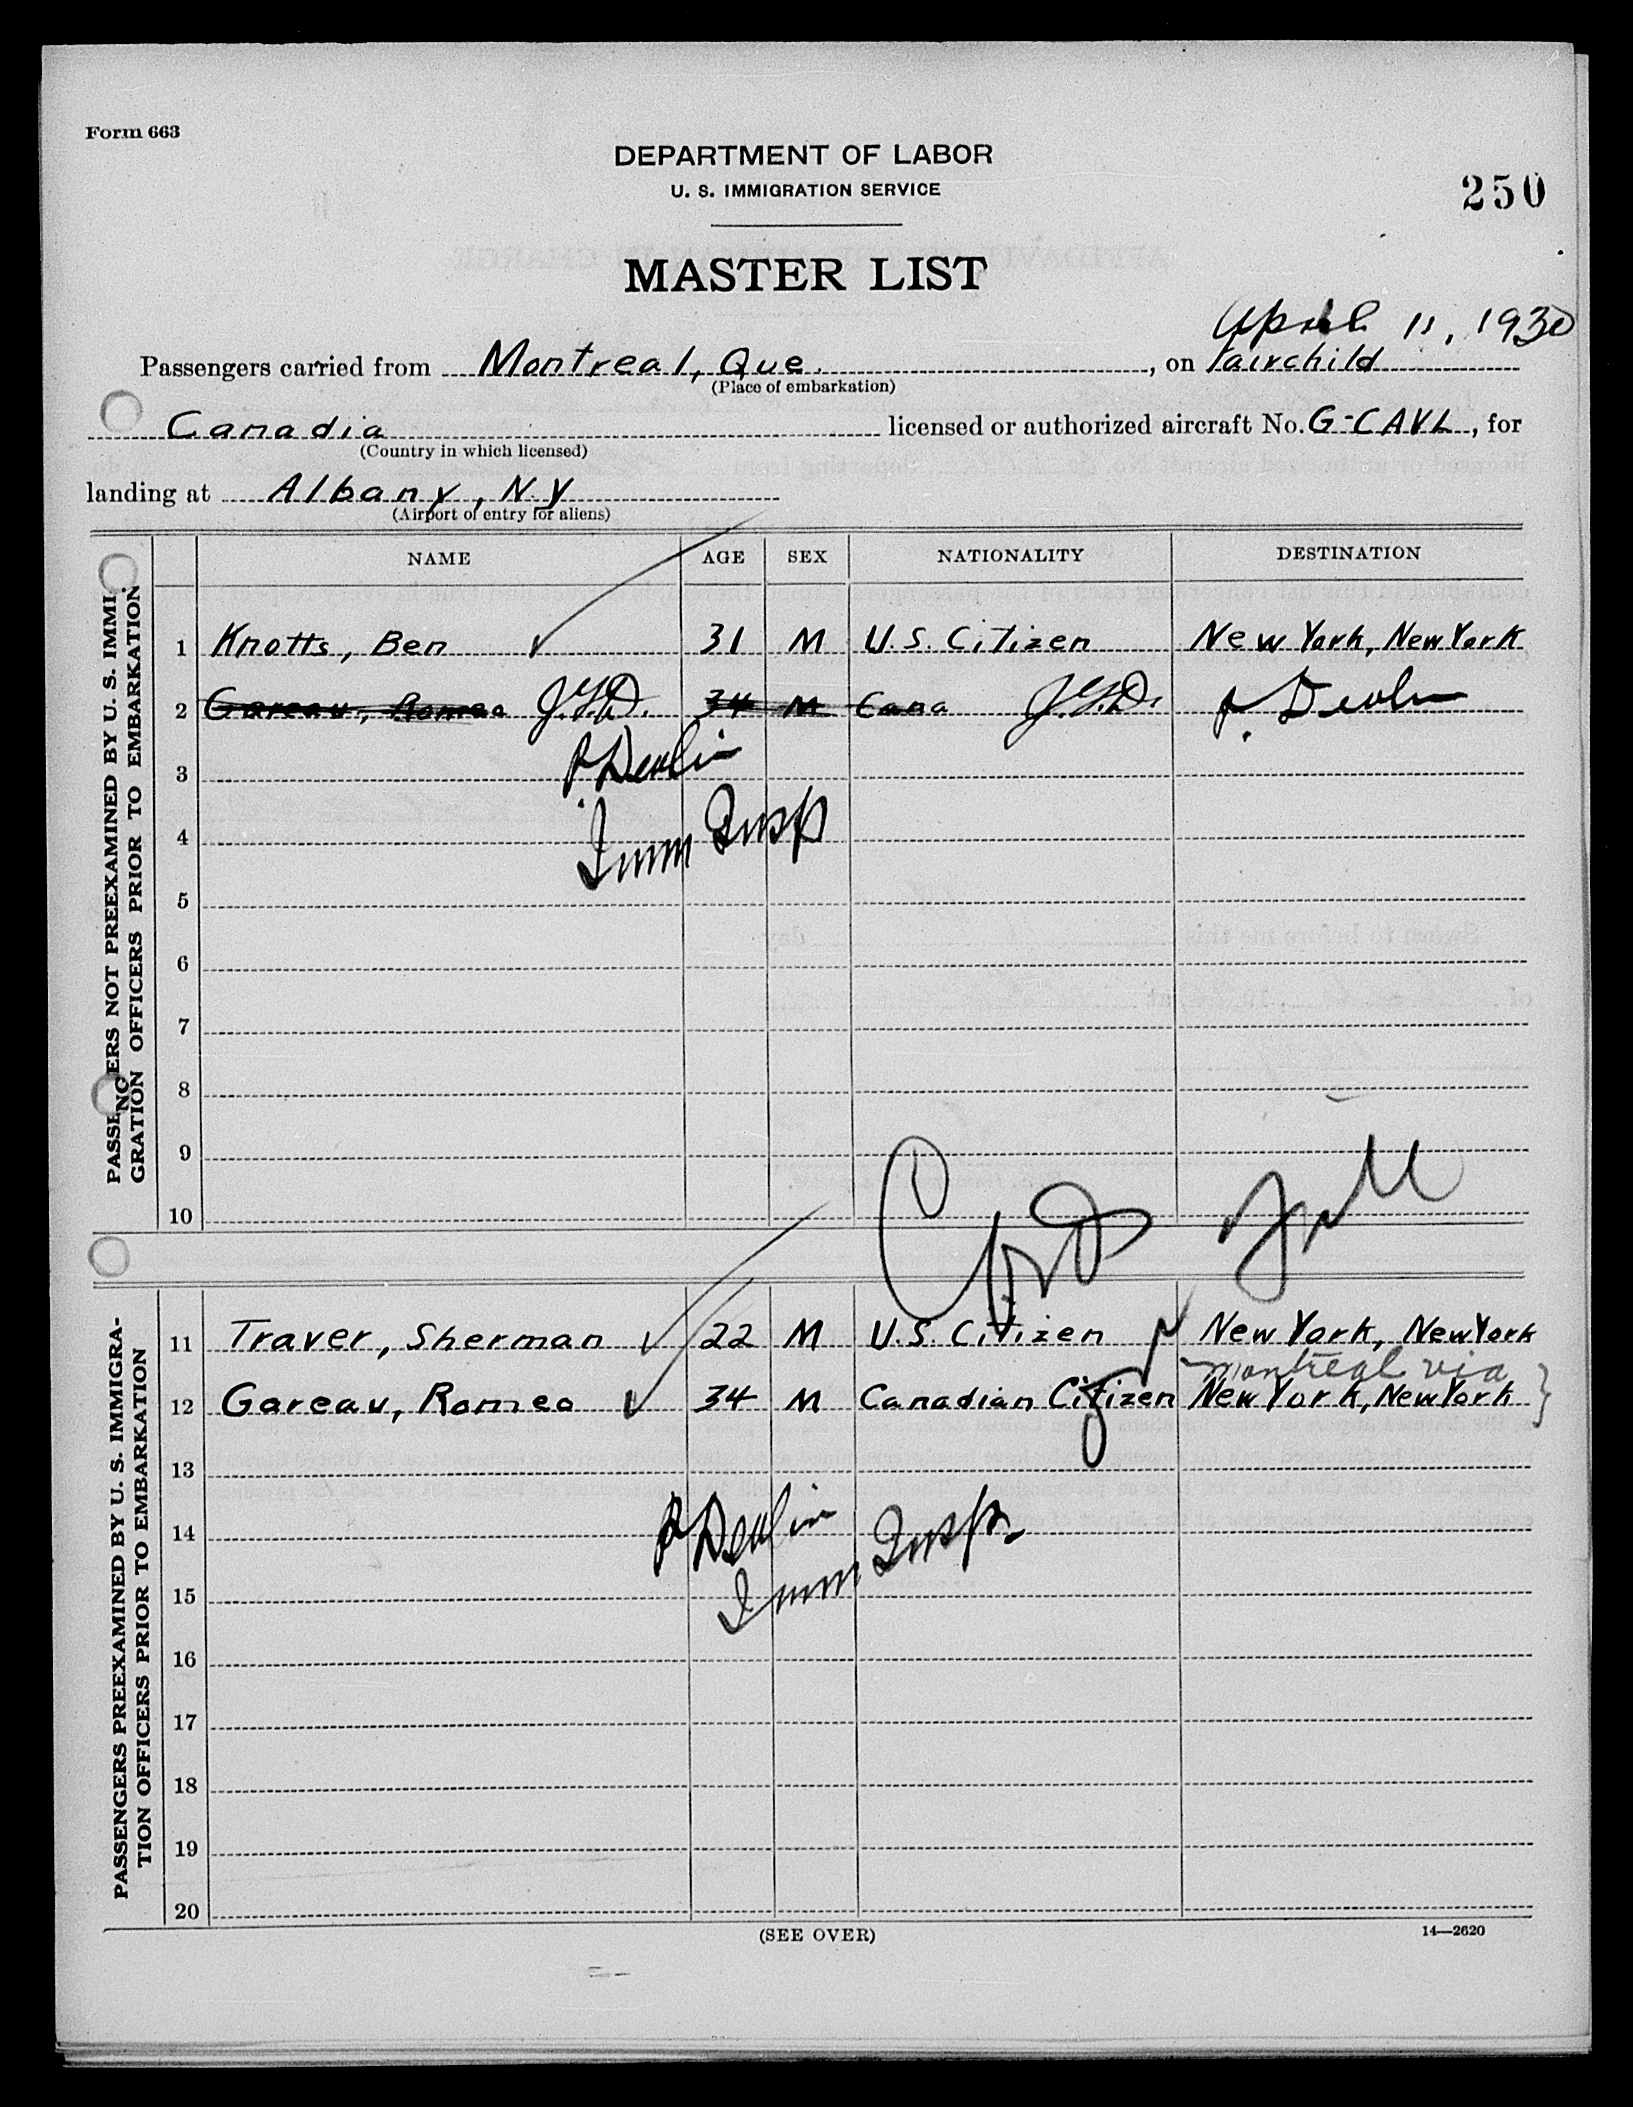 Form 663
DEPARTMENT OF LABOR
U. S. IMMIGRATION SERVICE
250
MASTER LIST
April 11, 1930
Passengers carried from Montreal, Que. , on Fairchild
(Place of embarkation)
Canadia licensed or authorized aircraft No. G-CAVL, for
(Country in which licensed)
landing at Albany, N.Y
(Airport of entry for aliens)
NAME AGE SEX NATIONALITY DESTINATION
PASSENGERS NOT PREEXAMINED BY U. S. IMMI-
GRATION OFFICERS PRIOR TO EMBARKATION
1 Knotts, Ben 31 M U.S. Citizen New York, New York
2 Gareau, Romeo J.G.D. 34 M Cana J.G.D. P. Devlin
3 P. Devlin
4 Imm Insp
5
6
7
8
9
10
PASSENGERS PREEXAMINED BY U. S. IMMIGRA-
TION OFFICERS PRIOR TO EMBARKATION
11 Traver, Sherman 22 M U.S. Citizen New York, New York
Montreal via
12 Gareau, Romeo 34 M Canadian Citizen New York, New York
13
14 P. Devlin
Imm Insp.
15
16
17
18
19
20
(SEE OVER)
14—2620